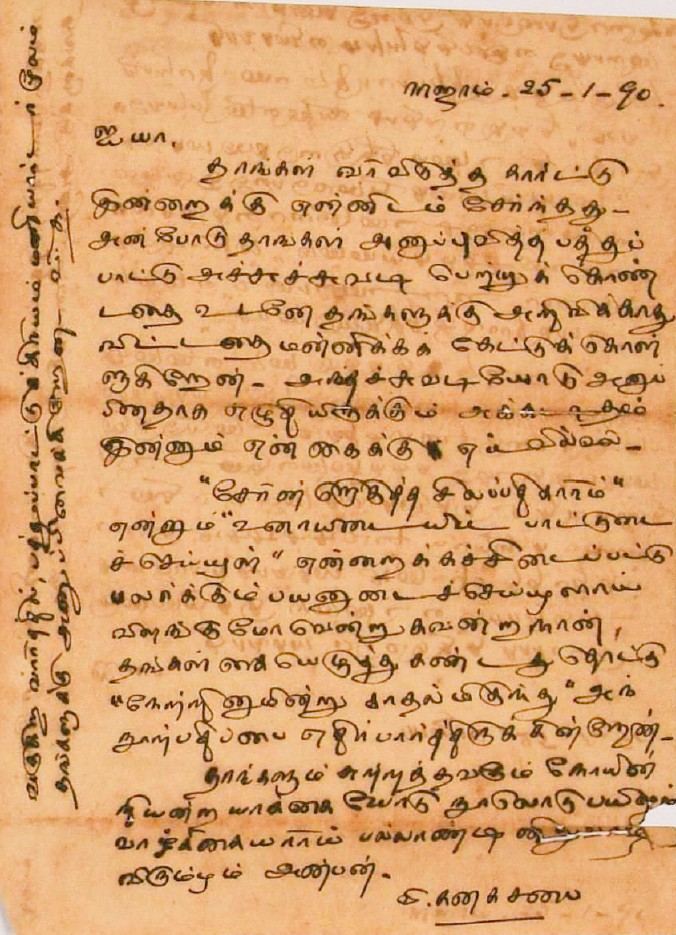 25-1-90.
ஐயா,
தாங்கள் வரவிடுத்த கார்ட்டு
இன்றைக்கு என்னிடம் சேர்ந்தது-
அன்போடு தாங்கள் அனுப்புவித்த பத்துப்
பாட்டு அச்சுச்சுவடி பெற்றுக் கொண்
டதை உடனே தங்களுக்கு அறிவிக்காது
விட்டதை மன்னிக்கக் கேட்டுக் கொள்
ளுகிறேன்- அந்தச்சுவடியோடு அனுப்
பினதாக எழுதியிருக்கும்
இன்னும் என் கைக்கு எட்டவில்லை-
"சேரன் தெரித்த சிலப்பதிகாரம்"
என்னும் "உரையிடையிட்ட பாட்டுடை
ச் செய்யுள்" என்றைக்கச்சிடைப்பட்டு
பலர்க்கும் பயனுடைச் செய்யுளாய்
விளங்குமோவென்று கவன்றநான்,
தங்கள் கையெழுத்து கண்டது தொட்டு
"நேற்றினுமின்று காதல் மிகுந்து" அந்
நூற்பதிப்பை எதிர்பார்த்திருக்கின்றேன்-
தாங்களும் சுற்றத்தவரும் நோயின்
றியன்ற யாக்கையோடு நூலொடு பயிலும்
வாழ்க்கையராய் பல்லாண்டு
விரும்பும் அன்பன்.
வி. கனகசபை
வருகிற வாரத்தில், பத்துப்பாட்டுக்கிரயம் மணியார்டர் மூலம்
தங்களுக்கு அனுப்பிவைக்கிறேன்- வி. க.